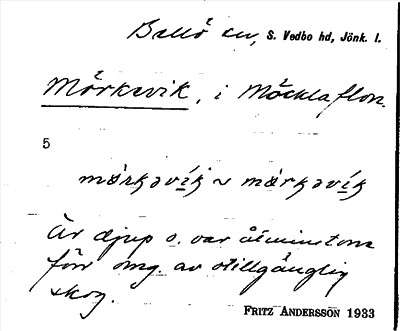 Bellö sn, S. Vedbo hd, Jönk. l.
Mörkevik, i Möcklaflon.
5
mörkəvík ~ mörkəvík
Är djup o. var åtminstone
förr omg. av otillgänglig
skog.
FRITZ ANDERSSON 1933